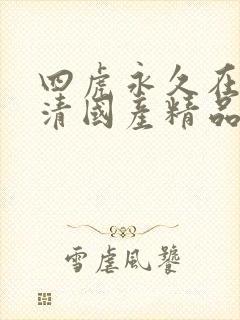 四虎永久在
清國產精品
雪虐風饕